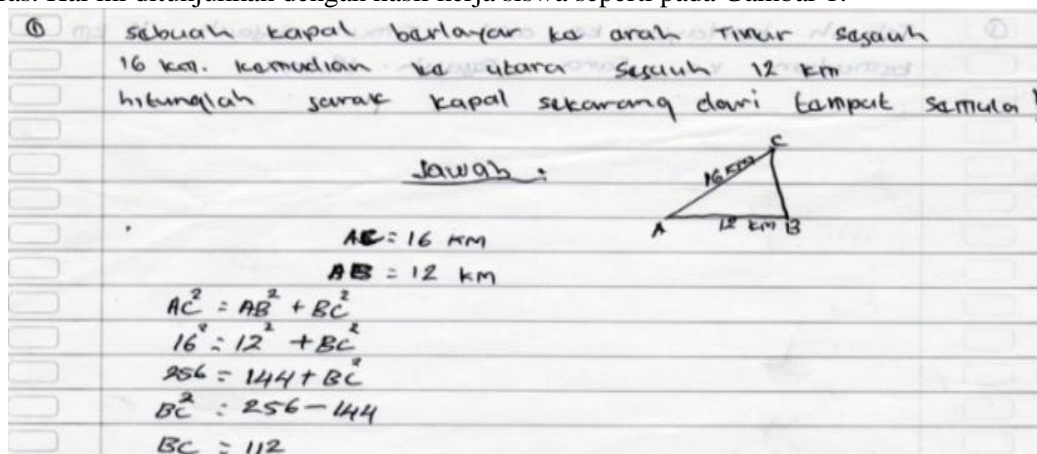 as. Hal ini ditunjukkan dengan hasil kerja siswa seperti pada Gambar 1.
① sebuah kapal berlayar ke arah Timur sejauh
16 km. kemudian ke utara sejauh 12 km
hitunglah jarak kapal sekarang dari tempat semula!
Jawab :
C
16 km
A 12 km B
AC = 16 KM
AB = 12 km
AC² = AB² + BC²
16² = 12² + BC²
256 = 144 + BC²
BC² = 256 - 144
BC = 112